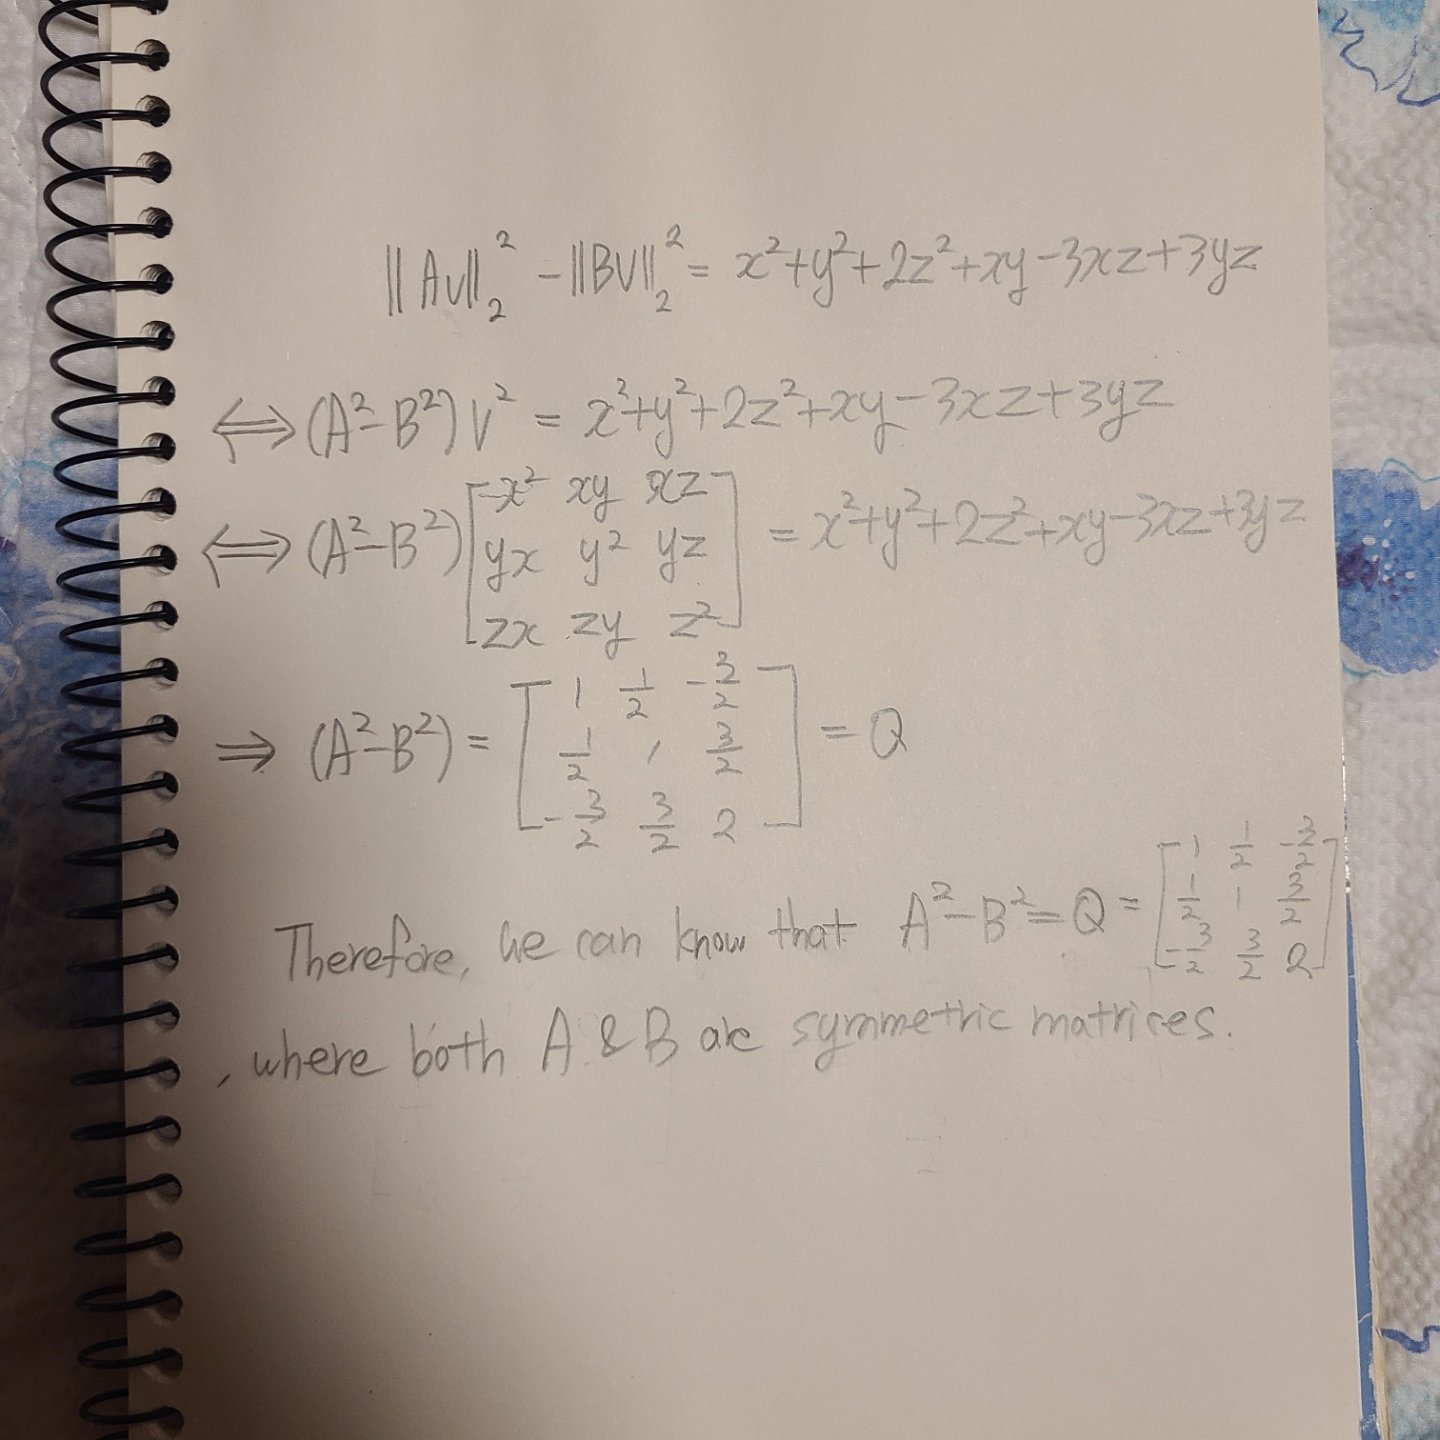 ||Av||₂² - ||BV||₂² = x²+y²+2z²+xy-3xz+3yz
⟺ (A²-B²)V² = x²+y²+2z²+xy-3xz+3yz
⟺ (A²-B²) [x² xy xz; yx y² yz; zx zy z²] = x²+y²+2z²+xy-3xz+3yz
⇒ (A²-B²) = [1 1/2 -3/2; 1/2 1 3/2; -3/2 3/2 2] = Q
Therefore, we can know that A²-B²=Q= [1 1/2 -3/2; 1/2 1 3/2; -3/2 3/2 2]
, where both A & B are symmetric matrices.